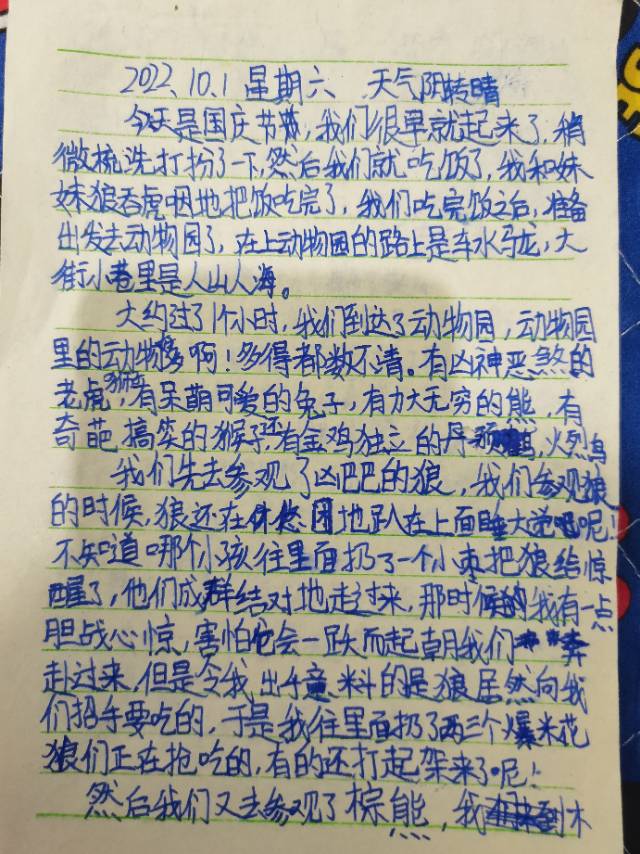 2022.10.1 星期六 天气阴转晴
今天是国庆节,我们很早就起来了,稍
微梳洗打扮了一下,然后我们就吃饭了,我和妹
妹狼吞虎咽地把饭吃完了,我们吃完饭之后,准备
出发去动物园了,在上动物园的路上是车水马龙,大
街小巷里是人山人海。
大约过了1个小时,我们到达了动物园,动物园
里的动物多啊!多得都数不清。有凶神恶煞的
老虎,狮子,有呆萌可爱的兔子,有力大无穷的熊,有
奇葩搞笑的猴子,还有金鸡独立的丹顶鹤,火烈鸟
我们先去参观了凶巴巴的狼,我们参观狼
的时候,狼还在休悠闲地趴在上面睡大觉呢!
不知道哪个小孩往里面扔了一个小枣把狼给惊
醒了,他们成群结对地走过来,那时候的我有一点
胆战心惊,害怕他会一跃而起朝我们奔
赴过来,但是令我出乎意料的是狼居然向我
们招手要吃的,于是我往里面扔了两三个爆米花
狼们正在抢吃的,有的还打起架来了呢!
然后我们又去参观了棕熊,我木